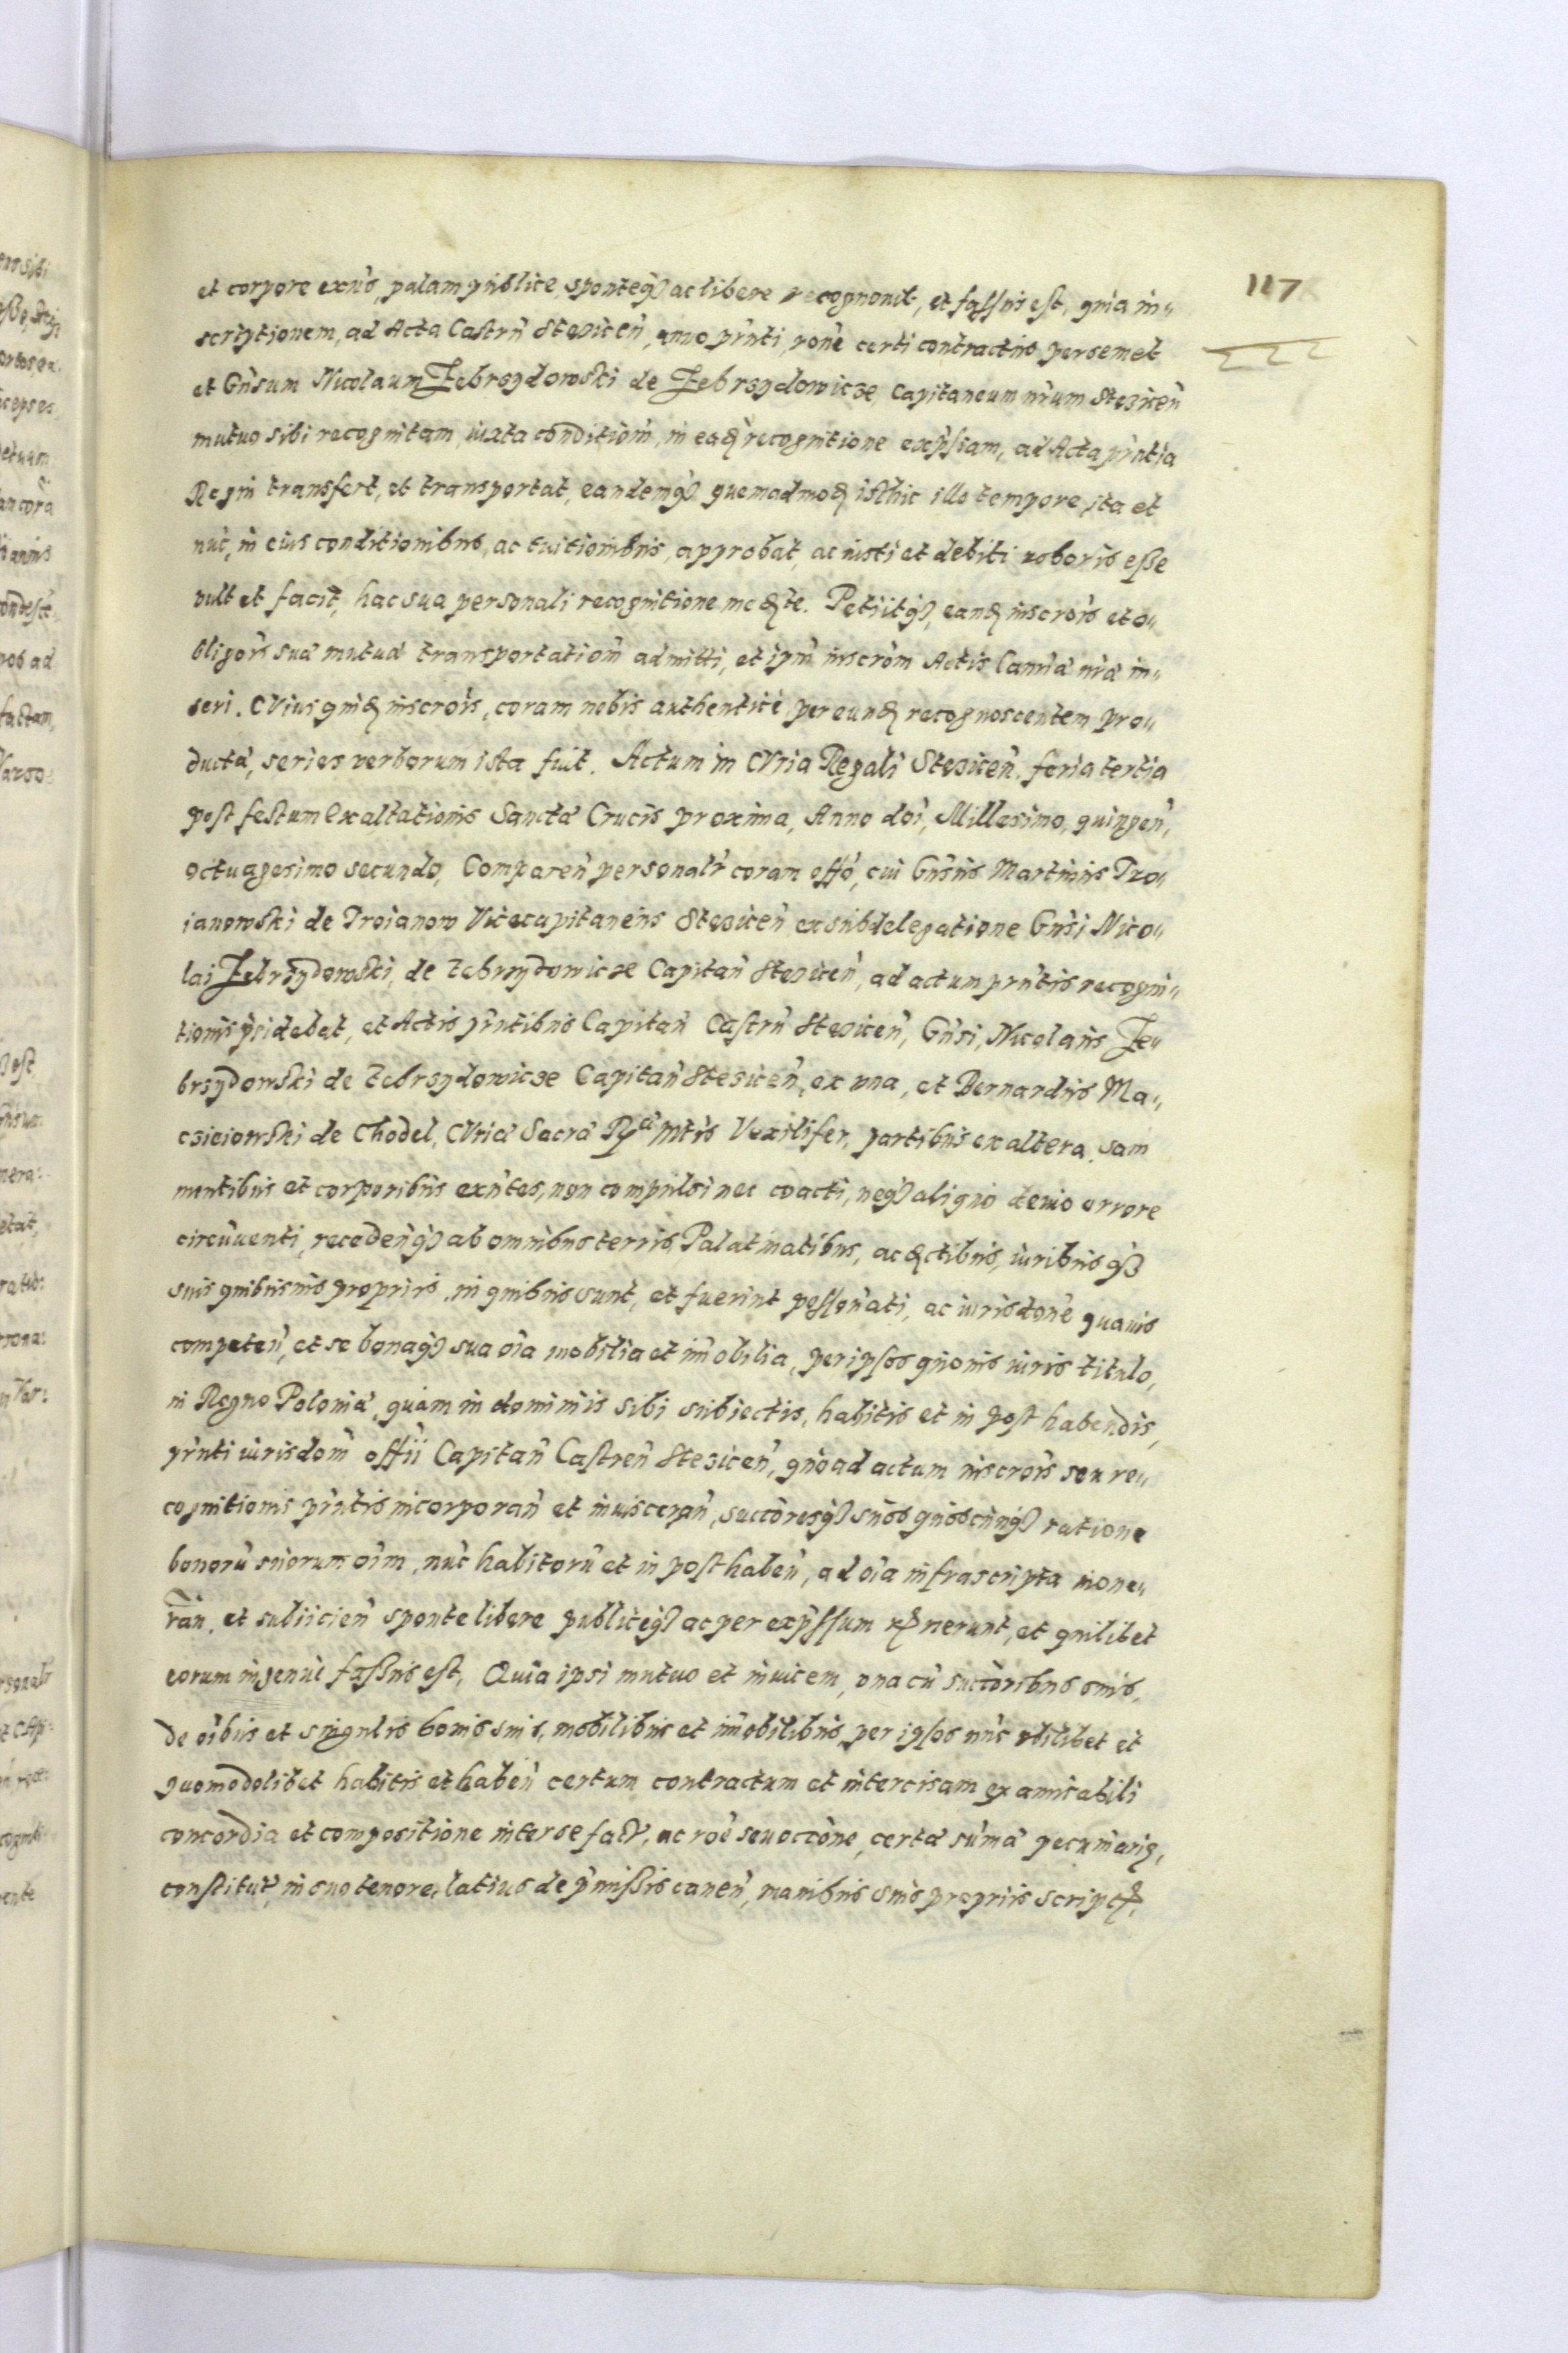 117
et corpore exñs, palam publice, sponteqȝ ac libere recognouit, et fassus est, quia in„
scriptionem, ad Acta Castrñ Stezicen̄, anno pr̃nti, rõne certi contractus per semet
et Gñsum Nicolaum Zebrzydowski de Zebrzydowicze, Capitaneum nr̃um Stezicen̄
mutuo sibi recognitam, iuxta conditiom̃, in eadȝ recognitione exp̃ssam, ad Acta pr̃ntia
Regni transfert, et transportat, eandemqȝ quemadmodȝ isthic illo tempore, ita et
nũc, in eius conditionibus, ac tuitionibus, approbat, ac iusti et debiti roboris esse
vult et facit, hac sua personali recognitione medȝte. Petiitqȝ, eandȝ inscrõis et o„
bligõis suæ mutuæ transportatiom̃ admitti, et ipm̃ inscrõm Actis Canr̃æ nr̃æ in„
seri. Cuius quidȝ inscrõis, coram nobis authenticè per eundȝ recognoscentem pro„
ductæ, series verborum ista fuit. Actum in Curia Regali Stezicen̄. feria tertia
post festum Exaltationis Sanctæ Crucis proxima, Anno dñi, Millesimo, quingen̄,
octuagesimo secundo, Comparen̄ personalr̃ coram offõ, cui Gñsus Martinus Tro„
ianowski de Troianow Vicecapitaneus Stezicen̄ ex subdelegatione Gñsi Nico„
lai Zebrzydowski, de Zebrzydowicze Capitan̄ Stezicen̄, ad actum pr̃ntis recogni„
tionis p̃sidebat, et Actis pr̃ntibus Capitan̄ Castrñ Stezicen̄, Gñsi, Nicolaus Ze„
brzydowski de Zebrzydowicze Capitan̄ Stezicen̄, ex vna, et Bernardus Ma„
cieiowski de Chodel, Curiæ Sacræ Rͣ Mtis Vexilifer, partibus ex altera, sani
mentibus et corporibus exñtes, non compulsi nec coacti, neqȝ aliquo deuio errore
circũuenti, recedeñqȝ ab omnibus terris, Palatinatibus, ac dȝctibus, iuribusqȝ
suis quibusuis proprijs, in quibus sunt, et fuerint possoñati, ac iurisdõne quauis
competen̄, et se bonaqȝ sua oĩa mobilia et im̃obilia, per ipsos quouis iuris titulo,
in Regno Poloniæ, quàm in dominijs sibi subiectis, habitis et in post habendis,
pr̃nti iurisdõni offĩi Capitan̄ Castren̄ Stezicen̄, quoad actum inscrõis seu re„
cognitionis pr̃ntis incorporan̄ et inuisceran̄, succõresqȝ suos quoscunqȝ ratione
bonorũ suorum oĩm, nũc habitorũ et in post haben̄, ad oĩa infrascripta inone„
ran̄, et subijcien̄ sponte libere publiceqȝ ac per exp̃ssum rȝnerunt, et quilibet
eorum ingenuè fassus est, Quia ipsi mutuo et inuicem, vna cũ succõribus suis,
de oĩbus et singulis bonis suis, mobilibus et im̃obilibus, per ipsos nũc vbilibet et
quomodolibet habitis et haben̄ certum contractum et intercisam ex amicabili
concordia et compositione inter se fact̃, ac rõe seu occõne, certæ sũmæ pecuniariȩ,
constitut̃, in suo tenore, latius de p̃missis canen̄, manibus suis proprijs script̃,